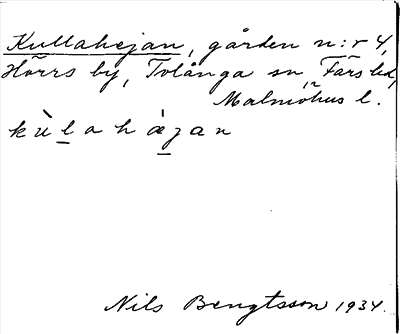 Kullahejan, gården n:r 4,
Hörrs by, Tolånga sn, Färs hd,
Malmöhus l.
kùlahàjan
Nils Bengtsson 1934.